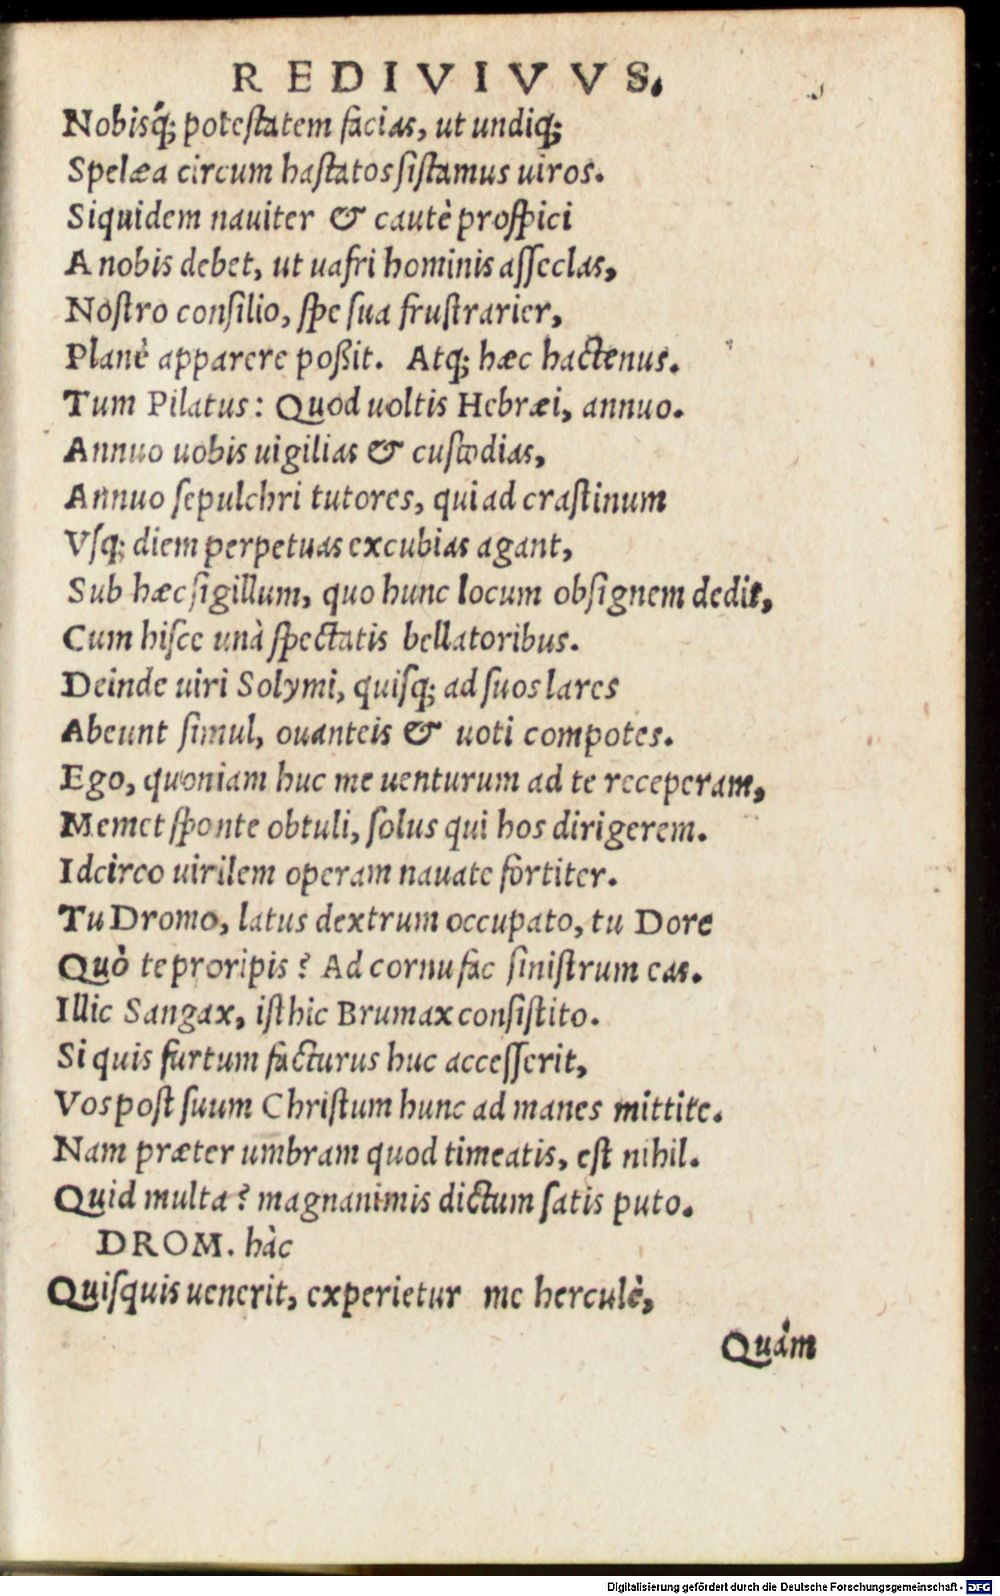 REDIVIVVS.
Nobisq́; poteſtatem facias, ut undiq;
Spelæa circum haſtatos ſiſtamus uiros.
Siquidem nauiter & cautè proſpici
A nobis debet, ut uafri hominis aſſeclas,
Noſtro conſilio, ſpe ſua fruſtrarier,
Planè apparere poßit. Atq; hæc hactenus.
Tum Pilatus: Quod uoltis Hebræi, annuo.
Annuo uobis uigilias & cuſtodias,
Annuo ſepulchri tutores, qui ad craſtinum
Vſq; diem perpetuas excubias agant,
Sub hæc ſigillum, quo hunc locum obſignem dedit,
Cum hiſce unà ſpectatis bellatoribus.
Deinde uiri Solymi, quiſq; ad ſuos lares
Abeunt ſimul, ouanteis & uoti compotes.
Ego, quoniam huc me uenturum ad te receperam,
Memet ſponte obtuli, ſolus qui hos dirigerem.
Idcirco uirilem operam nauate fortiter.
Tu Dromo, latus dextrum occupato, tu Dore
Quò te proripis? Ad cornu fac ſiniſtrum eas.
Illic Sangax, iſthic Brumax conſiſtito.
Si quis furtum facturus huc acceſſerit,
Vos poſt ſuum Chriſtum hunc ad manes mittite.
Nam præter umbram quod timeatis, eſt nihil.
Quid multa? magnanimis dictum ſatis puto.
DROM. hàc
Quiſquis uenerit, experietur me herculè,
Quám
Digitalisierung gefördert durch die Deutsche Forschungsgemeinschaft - DFG